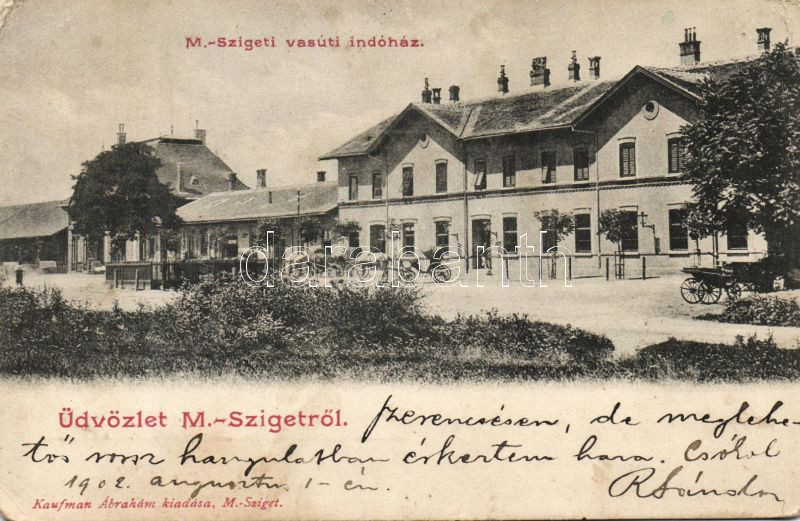 M.-Szigeti vasúti indóház.
darabanth
Üdvözlet M.-Szigetről.
Szerencsésen, de meglehe-
tős rossz hangulatban érkeztem haza. Csókol
1902. augusztus 1-én.
RSándor
Kaufman Ábrahám kiadása, M.-Sziget.